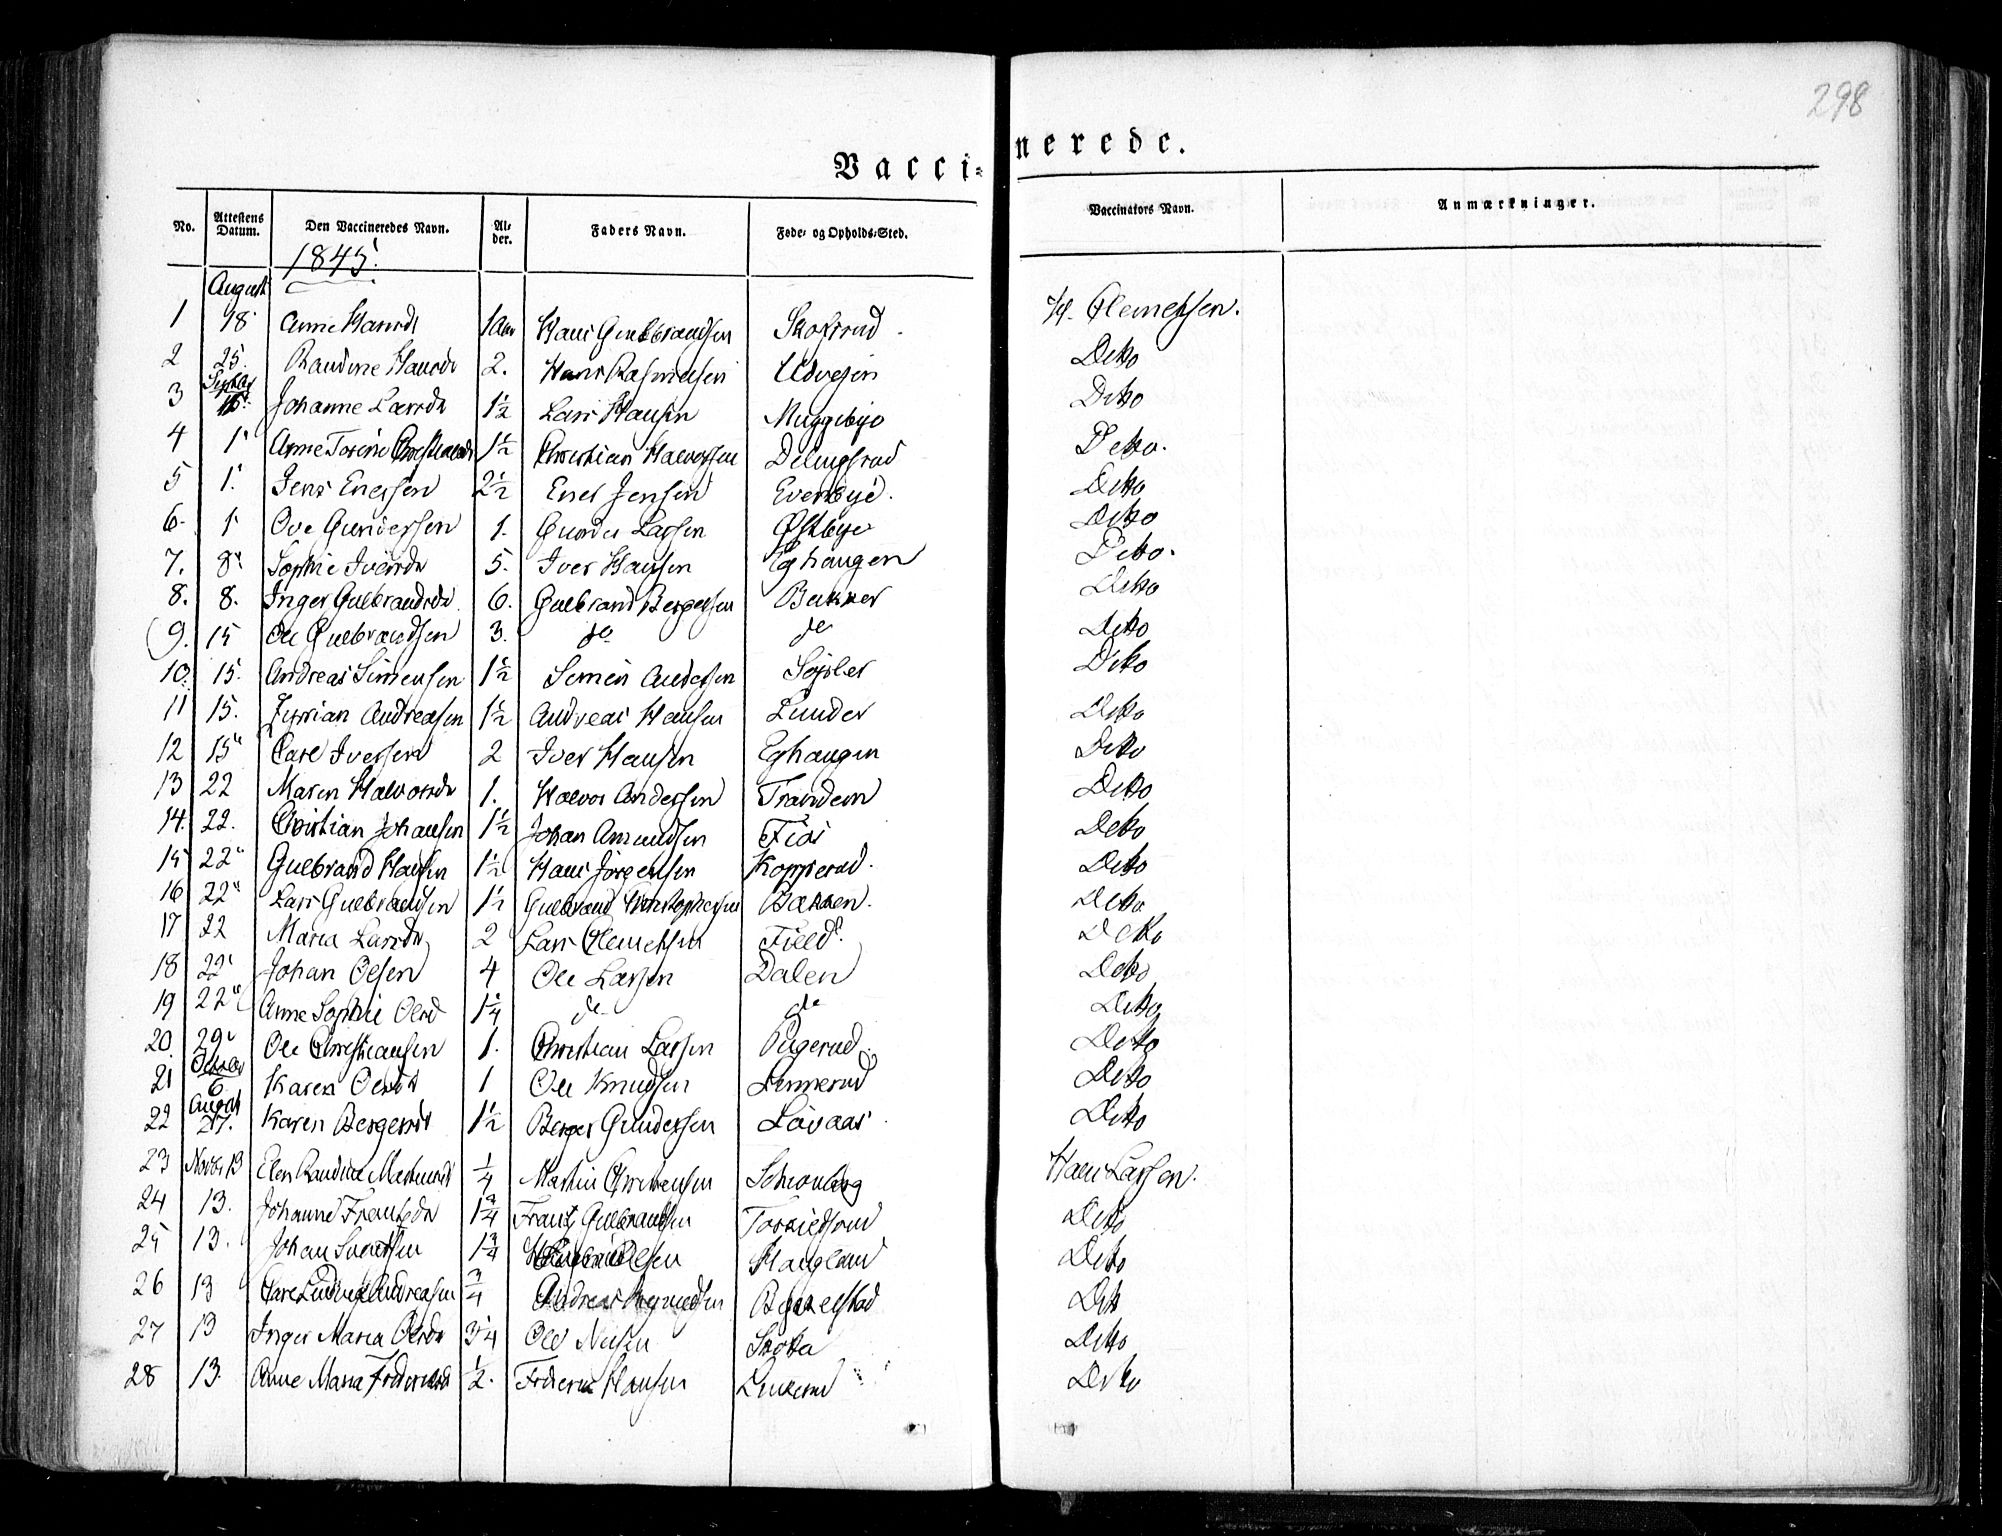 298
Vacci-nerede.
No. Attestens Datum. Den Vaccineredes Navn. Alder. Faders Navn. Føde- og Opholds-Sted. Vaccinators Navn. Anmærkninger.
1845.
August
1 18 Anne Hansdt 1 Aar Hans Gulbrandsen H. Clemetsen.
2 25. Randine Hansdr 2. Hans Rasmussen Udvejen Ditto
3 Johanne Larsdr 1½ Lars Hansen Muggebye Ditto
4 1 Anne Torine 1½ Christian Halvorsen Delingsrud Ditto.
5 1. Jens Enersen 2½ Ener Jensen Evenbye. Ditto
6. 1 Ove Gundersen 1. Gunder Larsen Østbye Ditto
7. 8 Sophie Iversdr 5. Iver Hansen Eghaugen Ditto.
8. 8. Inger Gulbrandsdr 6. Gulbrand Bergersen Bakker Ditto
9. 15 Ole Gulbrandsen 3. do do Ditto
10. 15. Andreas Simensen 1½ Simen Andersen Ditto
11 15. Andreasen 1½ Andreas Hansen Lunder Ditto
12 15 Carl Iversen 2 Iver Hansen Eghaugen Ditto
13 22 Maren Halvorsdr 1. Halvor Andersen Trandem Ditto
14. 22. Christian Johansen 1½ Johan Amundsen Ditto
15 22 Gulbrand Hansen 1½ Hans Jörgensen Kopperud. Ditto
16 22 Lars Gulbrandsen 1½ Gulbrand Christophersen Bakken. Ditto
17 22 Maria Larsdr 2 Lars Clemetsen Field. Ditto
18 22 Johan Olsen 4 Ole Larsen Dalen Ditto
19 22 Anne Sophie Olsd 1¼ do do Ditto
20. 29 Ole Christiansen 1. Christian Larsen Ditto
October
21 6 Karen Olsdt 1 Ole Knudsen Ditto
August
22 27. Karen Bergersdt 1½ Berger Gundersen Løvaas Ditto
23 Novbr 13 Elen Randine ¼ Martin Christensen Hans Larsen.
24 13. Johanne Frantsdr 1¾ Frants Gulbrandsen Ditto
25 13. Johan 1¾ Haugland Ditto
26 13 Carl Ludvig Andreasen ¾ Andreas Ditto
27 13 Inger Maria Olsdr 3¼ Ole Nilsen Ditto
28 13. Anne Maria ½. Frederik Hansen Ditto